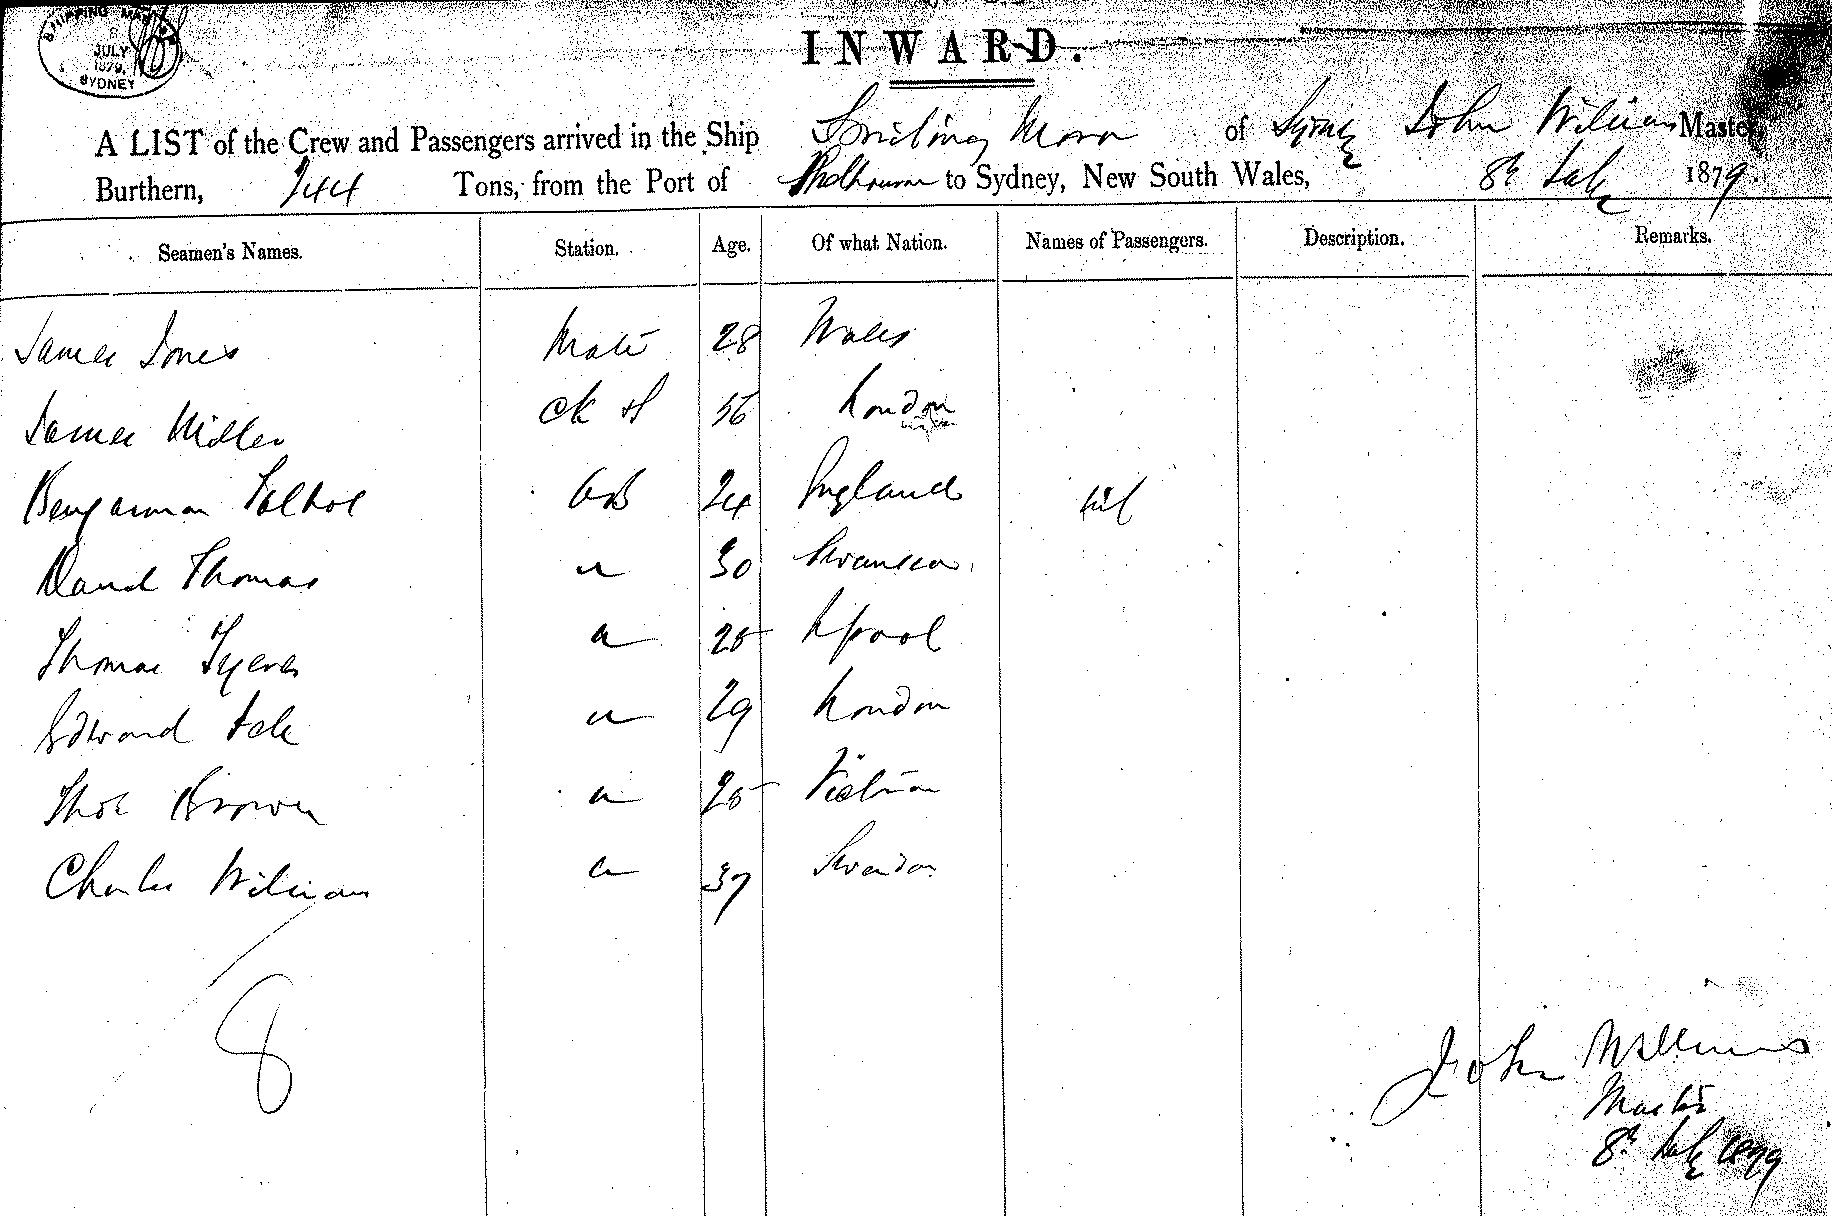 SHIPPING MASTER
JULY
1879.
SYDNEY
INWARD.
A LIST of the Crew and Passengers arrived in the Ship of Sydney John Williams Master,
Burthern, Tons, from the Port of Melbourne to Sydney, New South Wales, 8th July 1879.
Seamen's Names. Station. Age. Of what Nation. Names of Passengers. Description. Remarks.
James Jones Mate 28 Wales
James Midler Ck & S 56 London
Benjamin Talbot AB 24 England nil
David Thomas " 30 Swansea
Thomas Tyers " 25 Lpool
Edward " 29 London
Thos Brown " 25 Victoria
Charles Williams " 37
8
John Williams
Master
8th July 1879